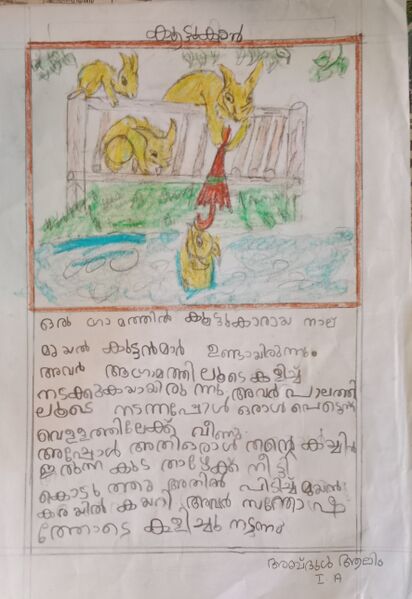 കൂട്ടുകാർ
ഒരു ഗ്രാമത്തിൽ കൂട്ടുകാരായ നാല്
മുയൽ കുട്ടൻമാർ ഉണ്ടായിരുന്നു.
അവർ ആഗ്രാമത്തിലൂടെ കളിച്ച്
നടക്കുകയായിരുന്നു, അവർ പാലത്തി
ലൂടെ നടന്നപ്പോൾ ഒരാൾ പെട്ടെന്ന്
വെള്ളത്തിലേക്ക് വീണു.
അപ്പോൾ അതിലൊരാൾ തന്റെ കയ്യിൽ
ഇരുന്ന കുട താഴേക്ക് നീട്ടി
കൊടുത്തു അതിൽ പിടിച്ച് മുയൽ
കരയിൽ കയറി, അവർ സന്തോഷ
ത്തോടെ കളിച്ചു നടന്നു
അബ്ദുൾ ആലിം
I A